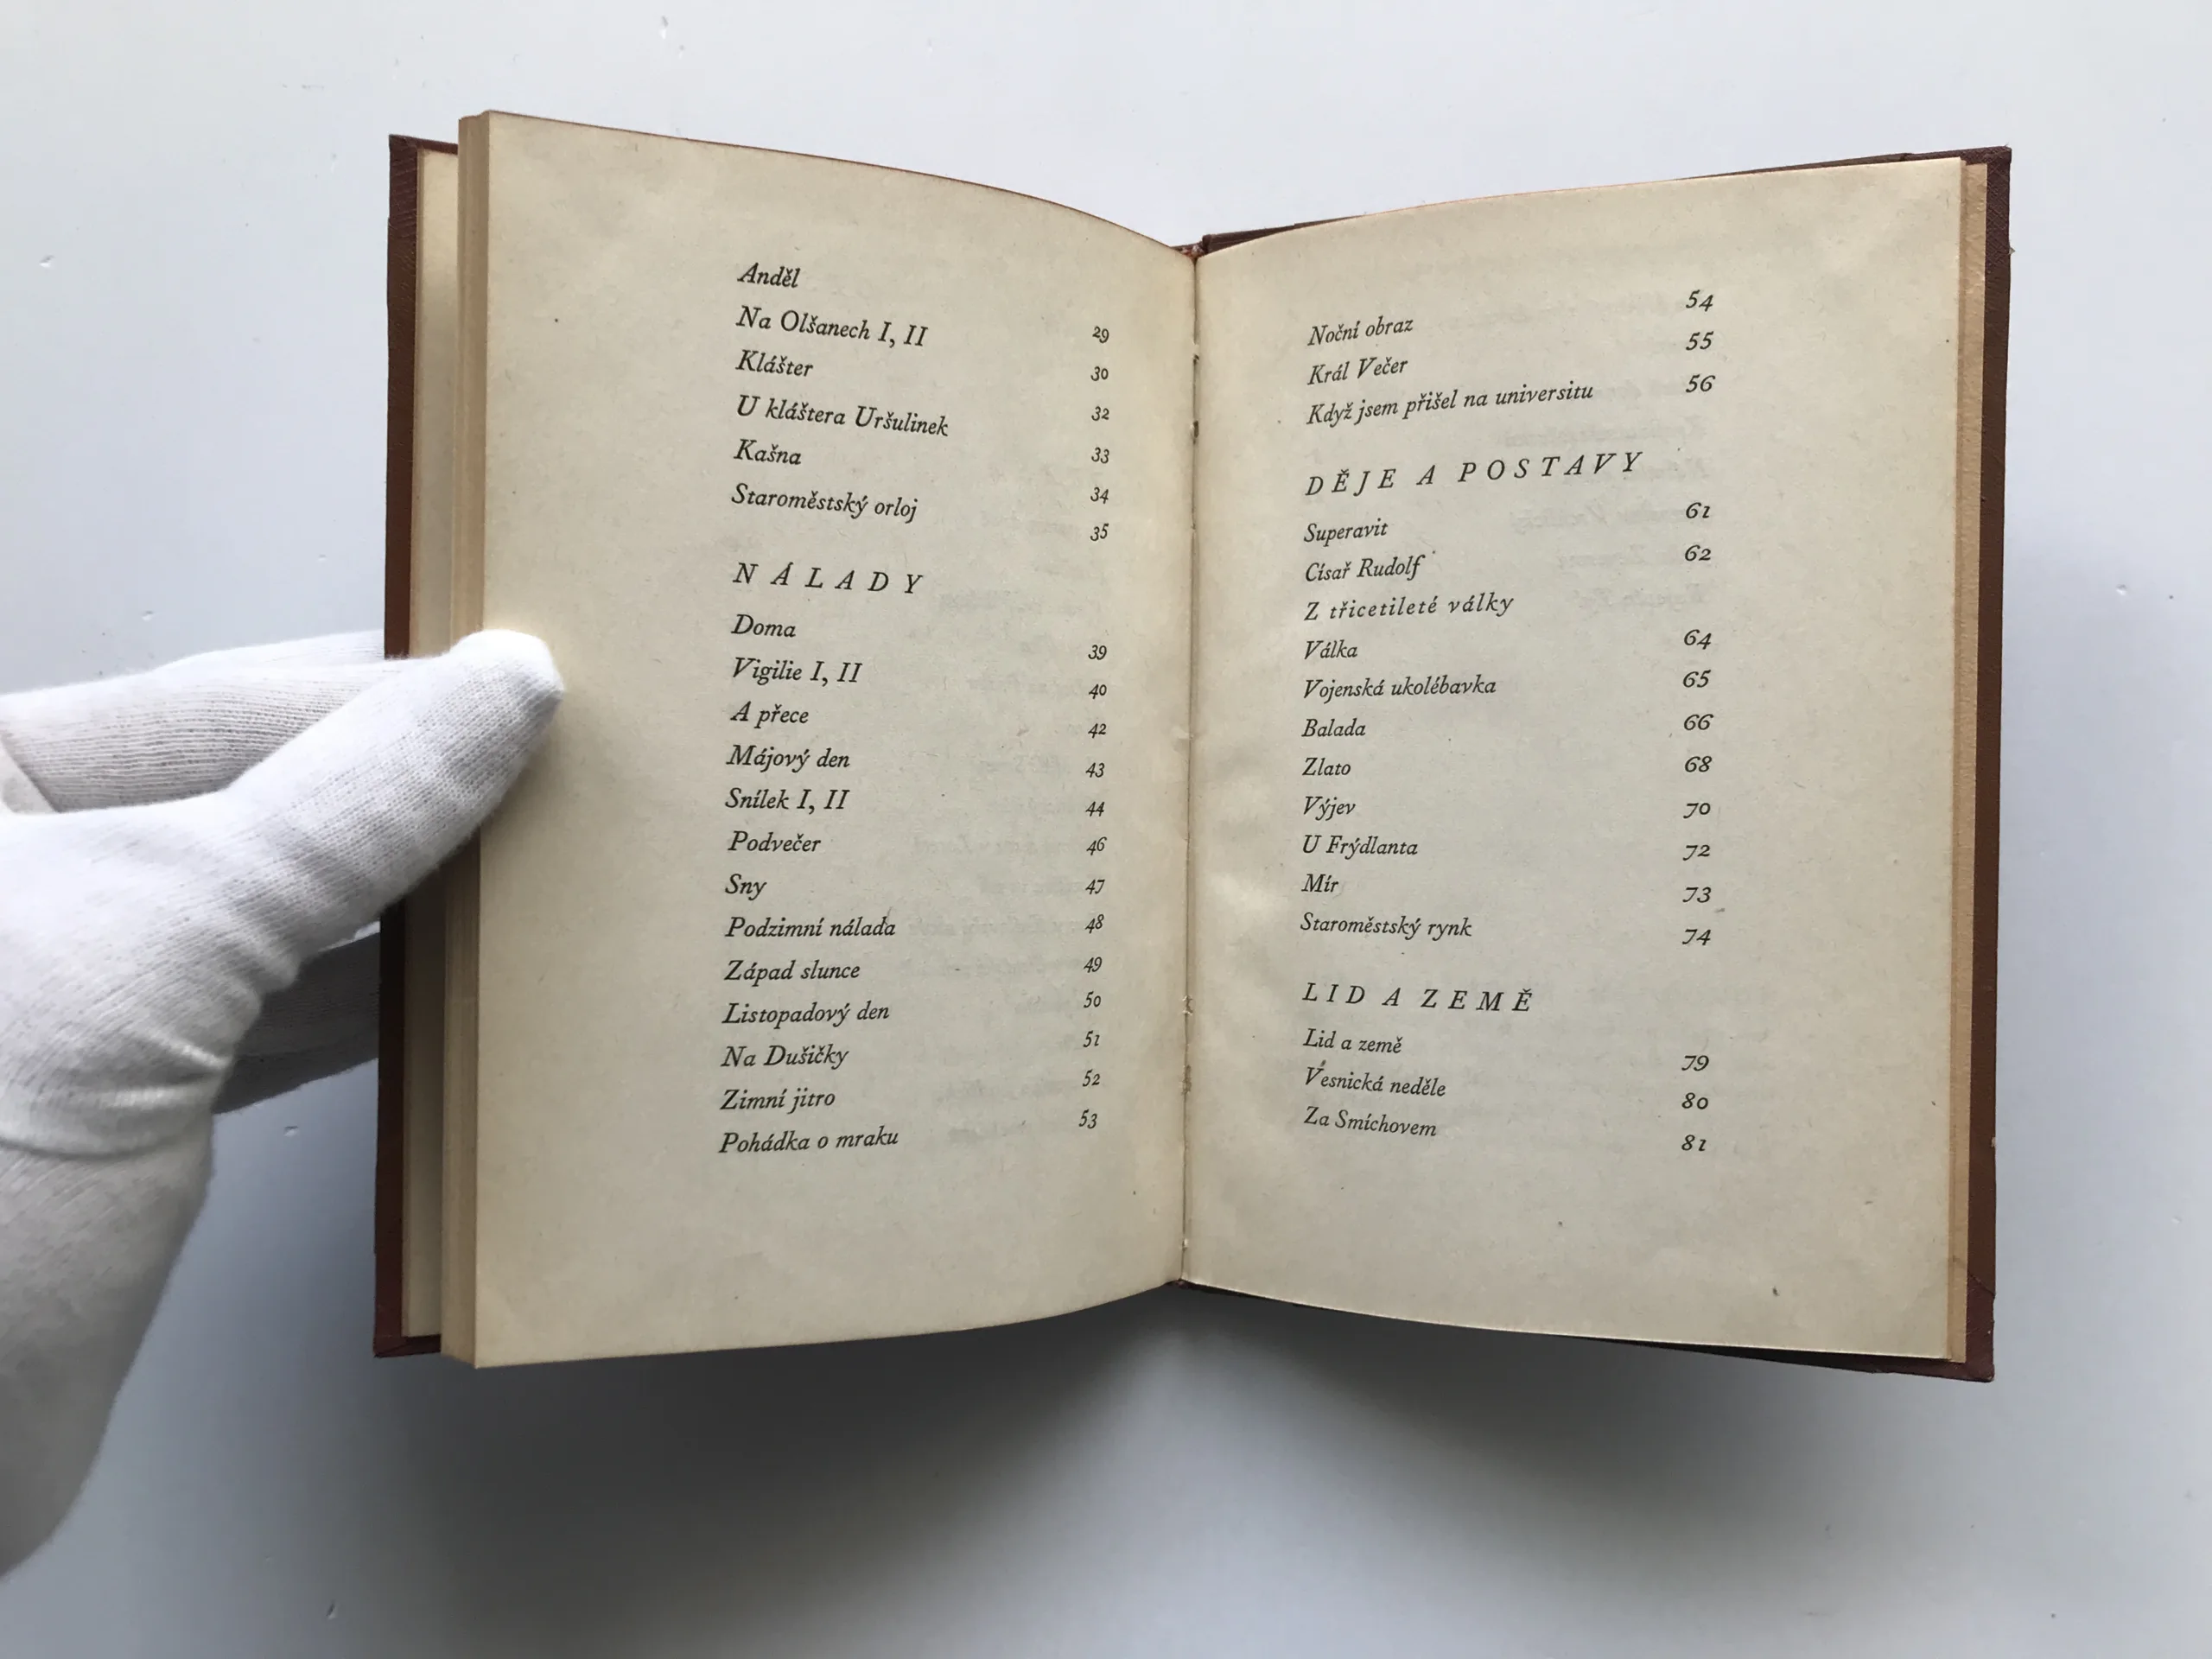 Anděl 29
Na Olšanech I, II 30
Klášter 32
U kláštera Uršulinek 33
Kašna 34
Staroměstský orloj 35
NÁLADY
Doma 39
Vigilie I, II 40
A přece 42
Májový den 43
Snílek I, II 44
Podvečer 46
Sny 47
Podzimní nálada 48
Západ slunce 49
Listopadový den 50
Na Dušičky 51
Zimní jitro 52
Pohádka o mraku 53
Noční obraz 54
Král Večer 55
Když jsem přišel na universitu 56
DĚJE A POSTAVY
Superavit 61
Císař Rudolf 62
Z třicetileté války
Válka 64
Vojenská ukolébavka 65
Balada 66
Zlato 68
Výjev 70
U Frýdlanta 72
Mír 73
Staroměstský rynk 74
LID A ZEMĚ
Lid a země 79
Vesnická neděle 80
Za Smíchovem 81